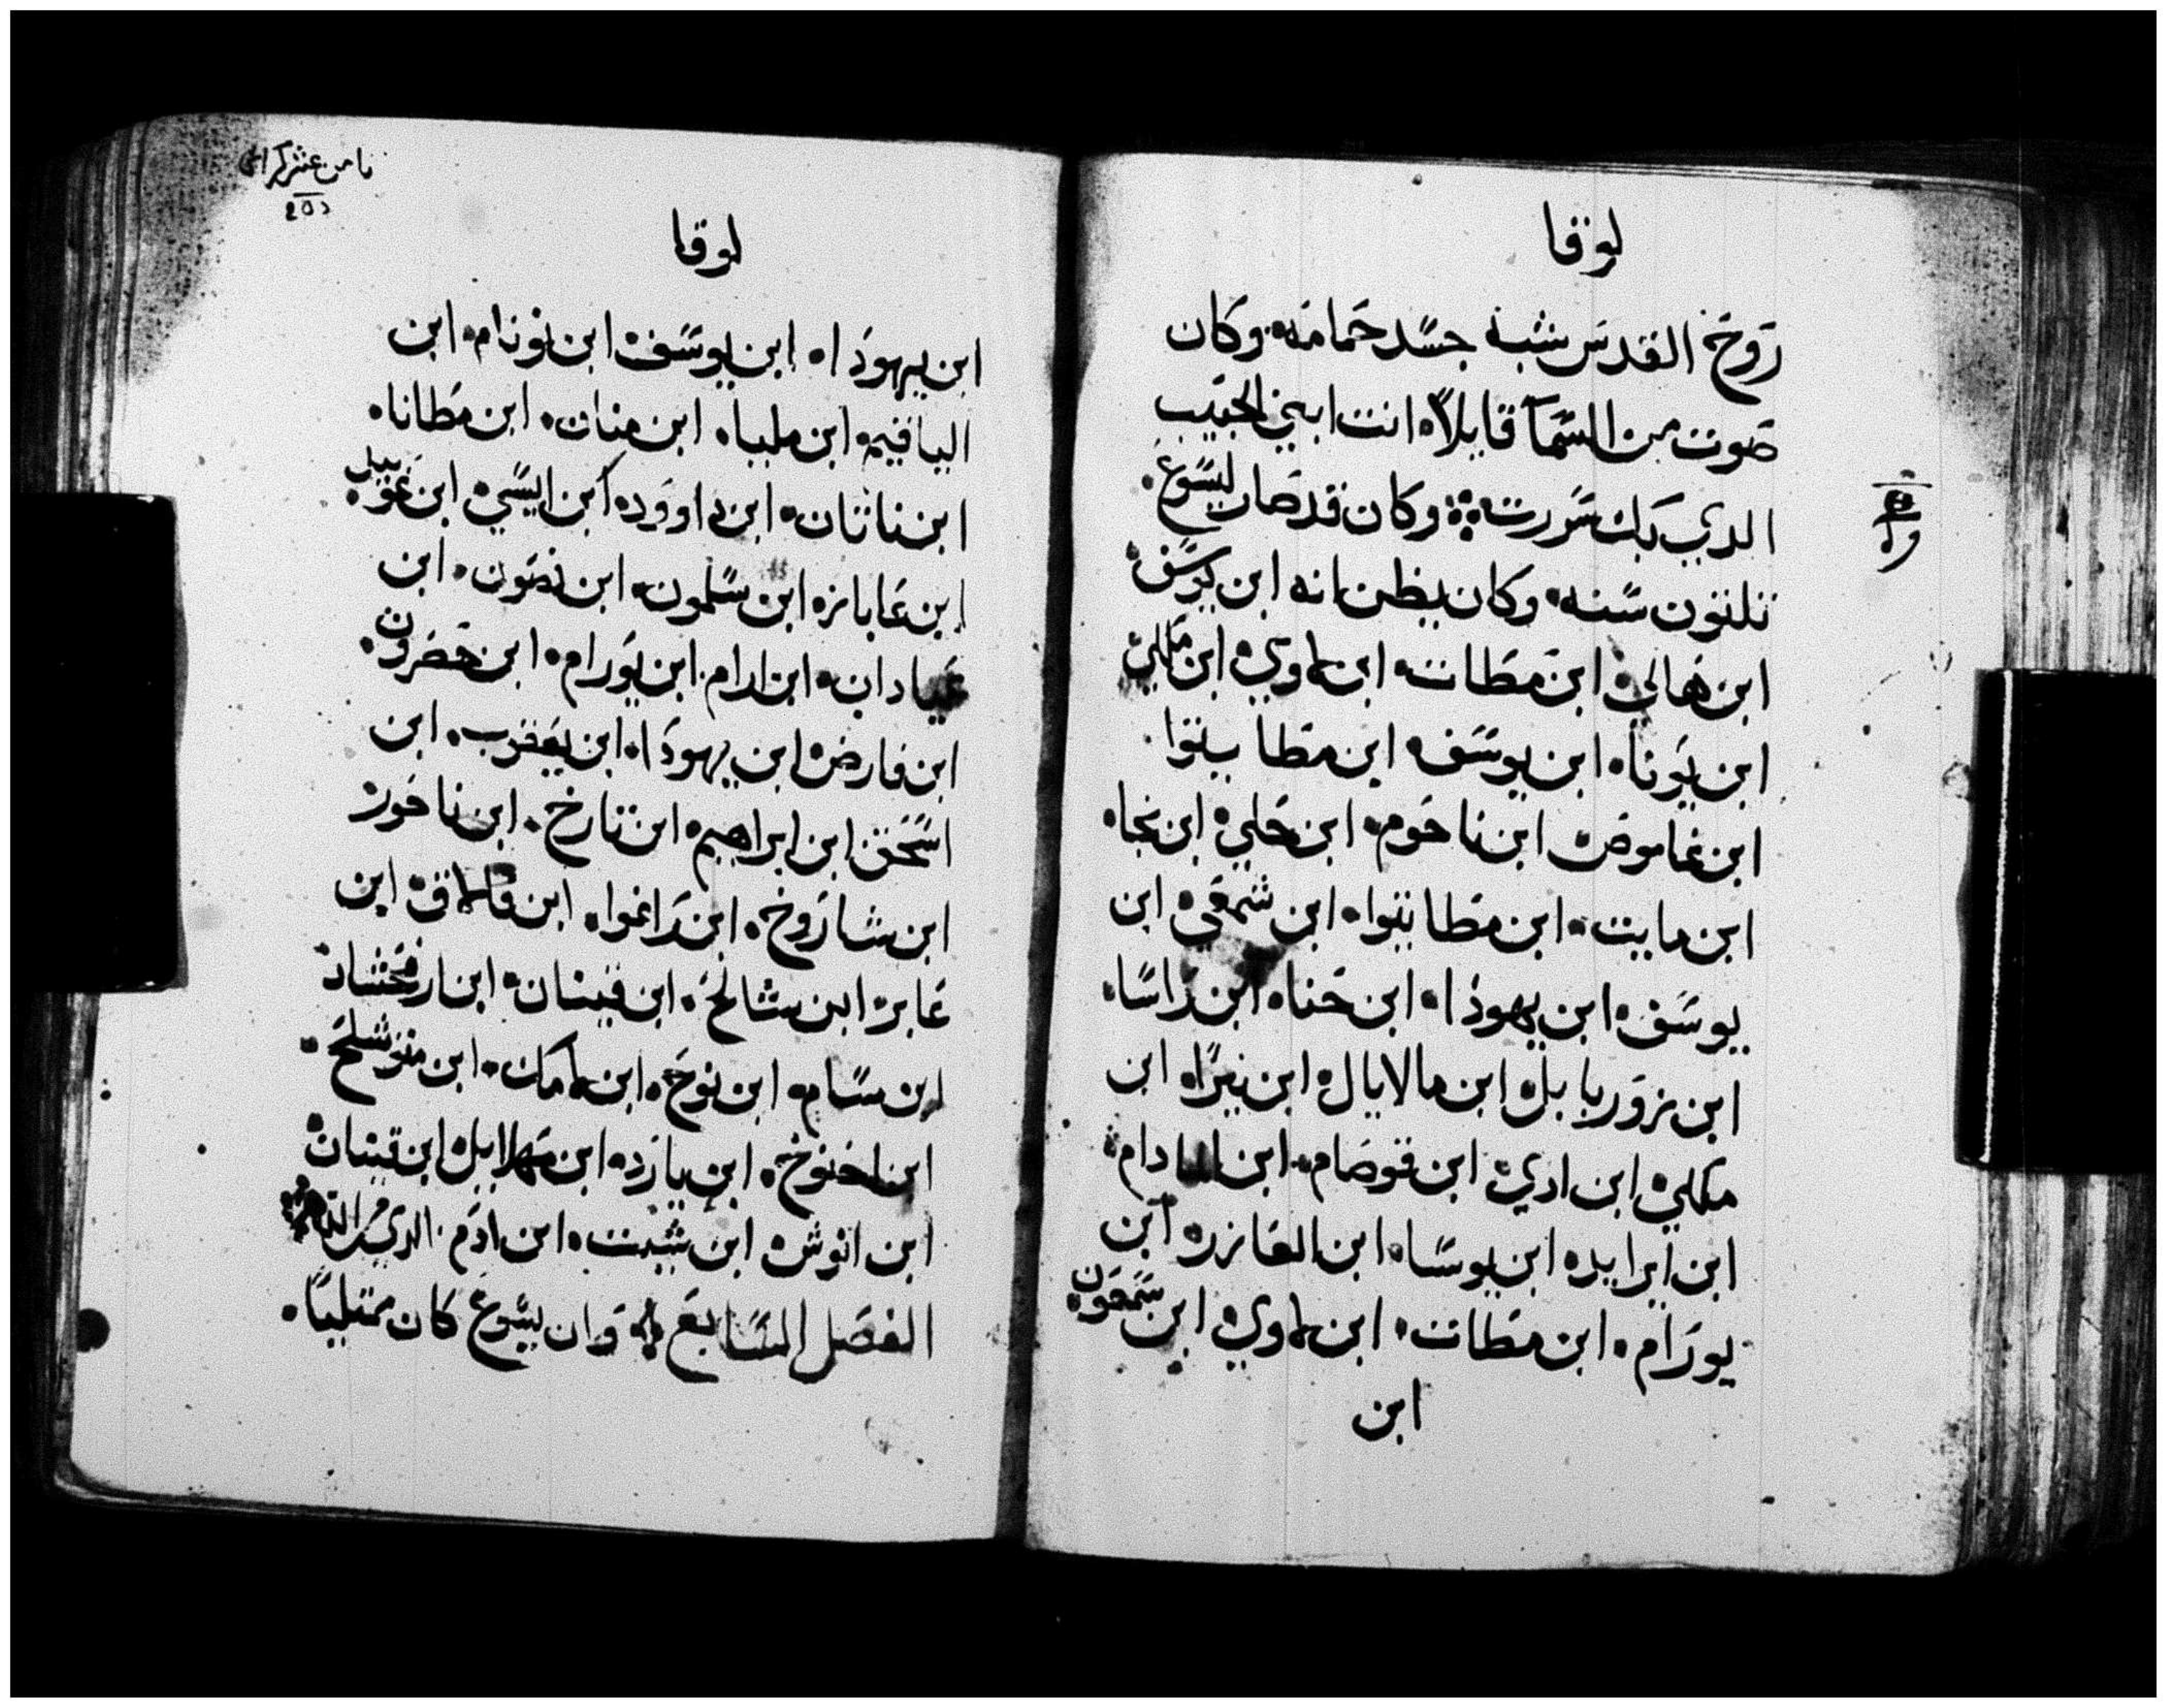 لوقا
روح القدس شبه جسد حمامه وكان
صوت من السمآ قايلاً انت ابني الحبيب
الدي بك سررت وكان قد صار ليسوع
تلتون سنه وكان يظن انه ابن يوسف
ابن هالي ابن مطات ابن لاوي ابن ملكي
ابن يونا ابن يوسف ابن مطاتيوا
ابن عاموص ابن ناحوم ابن حلي ابن نجا
ابن مايت ابن مطاتيوا ابن شمعي ابن
يوسف ابن يهودا ابن حنا ابن راسا
ابن زوربابل ابن مالايال ابن نيرا ابن
ملكي ابن ادي ابن قوصام ابن المادام
ابن ايرايد ابن يوسا ابن العازر ابن
يورام ابن مطات ابن لاوي ابن شمعون
ابن
ثامن عشر كراس
لوقا
ابن يهودا ابن يوسف ابن نونام ابن
الياقيم ابن مليا ابن منان ابن مطاتا
ابن ناتان ابن داوود ابن ايسي ابن عوبيل
ابن عاباز ابن سلمون ابن نصون ابن
عيادان ابن ارام ابن يورام ابن حضرون
ابن فارض ابن يهودا ابن يعقوب ابن
اسحق ابن ابراهيم ابن تارخ ابن ناحور
ابن شاروخ ابن راغوا ابن فالاق ابن
عابر ابن شالح ابن قينان ابن ارفخشاد
ابن سام ابن نوح ابن لامك ابن متوشلح
ابن اخنوخ ابن يارد ابن مهلاييل ابن قينان
ابن انوش ابن شيت ابن ادم الدي من الله
الفصل السابع وان يسوع كان ممتلياً